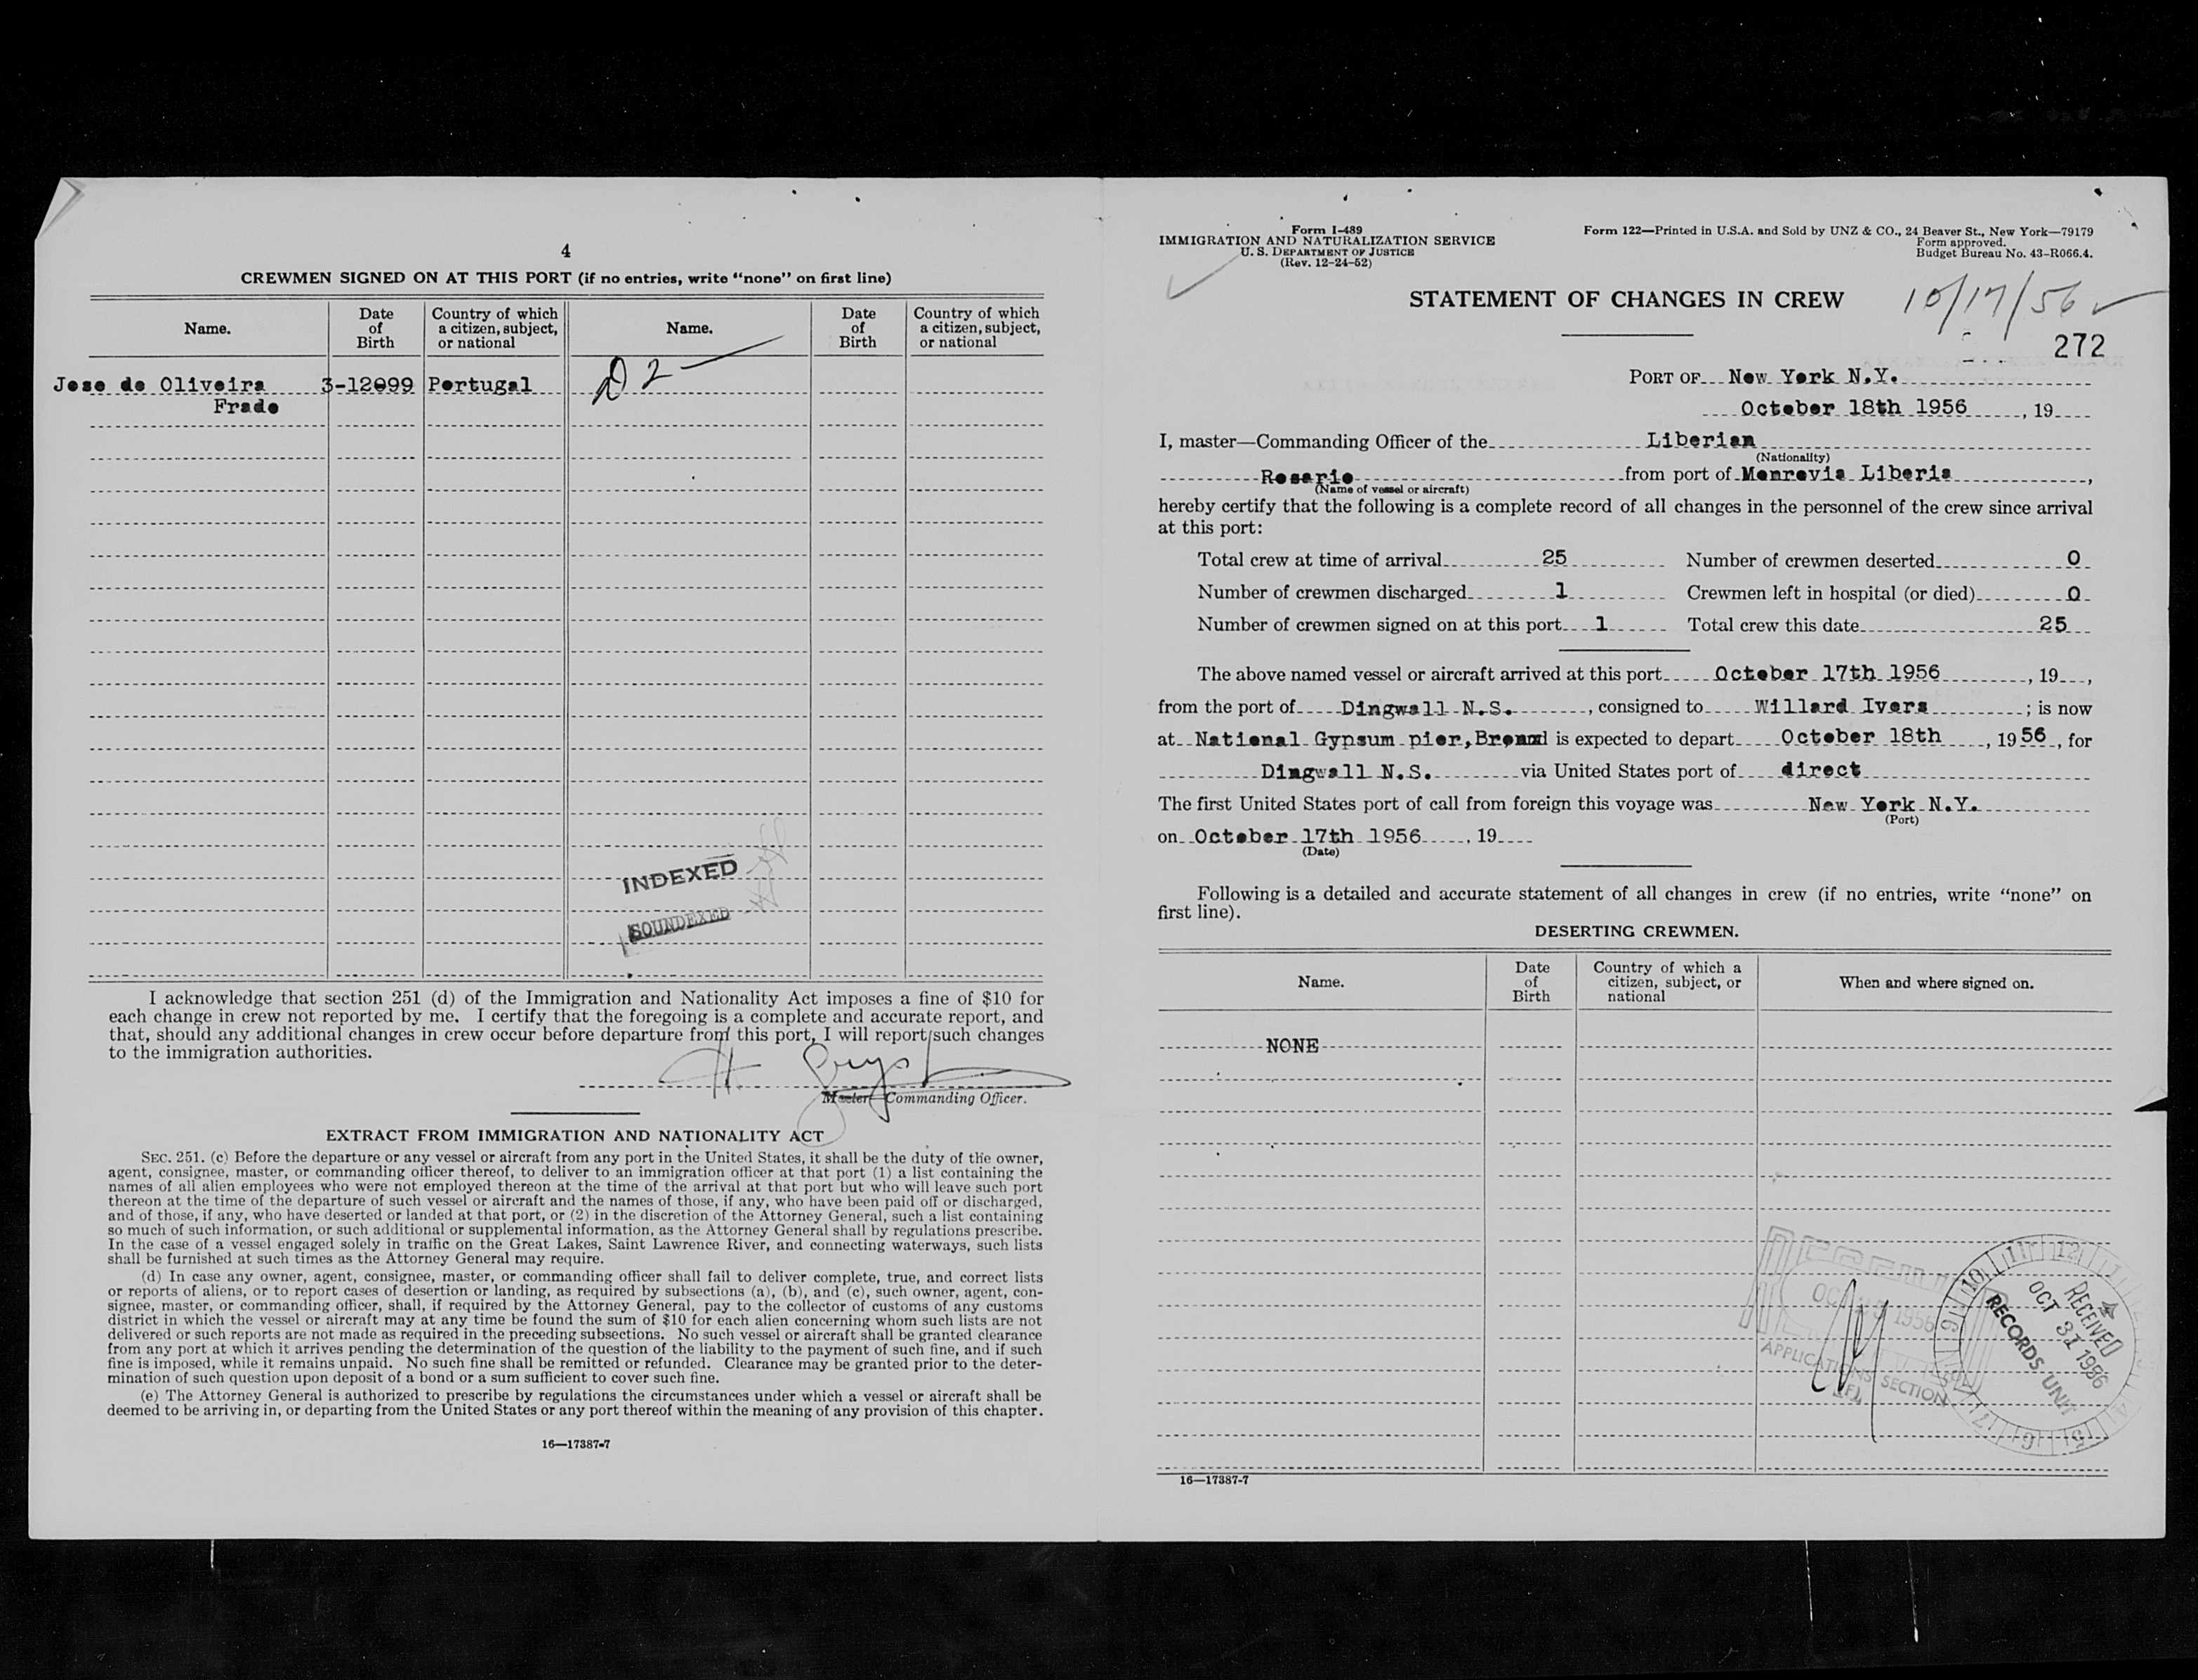 4
CREWMEN SIGNED ON AT THIS PORT (if no entries, write “none” on first line)
Name. Date of Birth Country of which a citizen, subject, or national Name. Date of Birth Country of which a citizen, subject, or national
Jose de Oliveira 3-12099 Portugal D 2
Frade
INDEXED
SOUNDEXED
I acknowledge that section 251 (d) of the Immigration and Nationality Act imposes a fine of $10 for
each change in crew not reported by me. I certify that the foregoing is a complete and accurate report, and
that, should any additional changes in crew occur before departure from this port, I will report such changes
to the immigration authorities.
Master—Commanding Officer.
EXTRACT FROM IMMIGRATION AND NATIONALITY ACT
SEC. 251. (c) Before the departure or any vessel or aircraft from any port in the United States, it shall be the duty of the owner,
agent, consignee, master, or commanding officer thereof, to deliver to an immigration officer at that port (1) a list containing the
names of all alien employees who were not employed thereon at the time of the arrival at that port but who will leave such port
thereon at the time of the departure of such vessel or aircraft and the names of those, if any, who have been paid off or discharged,
and of those, if any, who have deserted or landed at that port, or (2) in the discretion of the Attorney General, such a list containing
so much of such information, or such additional or supplemental information, as the Attorney General shall by regulations prescribe.
In the case of a vessel engaged solely in traffic on the Great Lakes, Saint Lawrence River, and connecting waterways, such lists
shall be furnished at such times as the Attorney General may require.
(d) In case any owner, agent, consignee, master, or commanding officer shall fail to deliver complete, true, and correct lists
or reports of aliens, or to report cases of desertion or landing, as required by subsections (a), (b), and (c), such owner, agent, con-
signee, master, or commanding officer, shall, if required by the Attorney General, pay to the collector of customs of any customs
district in which the vessel or aircraft may at any time be found the sum of $10 for each alien concerning whom such lists are not
delivered or such reports are not made as required in the preceding subsections. No such vessel or aircraft shall be granted clearance
from any port at which it arrives pending the determination of the question of the liability to the payment of such fine, and if such
fine is imposed, while it remains unpaid. No such fine shall be remitted or refunded. Clearance may be granted prior to the deter-
mination of such question upon deposit of a bond or a sum sufficient to cover such fine.
(e) The Attorney General is authorized to prescribe by regulations the circumstances under which a vessel or aircraft shall be
deemed to be arriving in, or departing from the United States or any port thereof within the meaning of any provision of this chapter.
16—17387-7
Form I-489
IMMIGRATION AND NATURALIZATION SERVICE
U. S. DEPARTMENT OF JUSTICE
(Rev. 12-24-52)
Form 122—Printed in U.S.A. and Sold by UNZ & CO., 24 Beaver St., New York—79179
Form approved.
Budget Bureau No. 43-R066.4.
STATEMENT OF CHANGES IN CREW
10/17/56
272
PORT OF New York N.Y.
October 18th 1956, 19
I, master—Commanding Officer of the Liberian
(Nationality)
Rosario from port of Monrovia Liberia,
(Name of vessel or aircraft)
hereby certify that the following is a complete record of all changes in the personnel of the crew since arrival
at this port:
Total crew at time of arrival 25 Number of crewmen deserted 0
Number of crewmen discharged 1 Crewmen left in hospital (or died) 0
Number of crewmen signed on at this port 1 Total crew this date 25
The above named vessel or aircraft arrived at this port October 17th 1956, 19,
from the port of Dingwall N.S., consigned to Willard Ivers; is now
at National Gypsum pier, is expected to depart October 18th, 1956, for
Dingwall N.S. via United States port of direct
The first United States port of call from foreign this voyage was New York N.Y.
(Port)
on October 17th 1956, 19
(Date)
Following is a detailed and accurate statement of all changes in crew (if no entries, write “none” on
first line).
DESERTING CREWMEN.
Name. Date of Birth Country of which a citizen, subject, or national When and where signed on.
NONE
OCT 1956
APPLICATIONS SECTION
RECEIVED
OCT 31 1956
RECORDS UNIT
16—17387-7